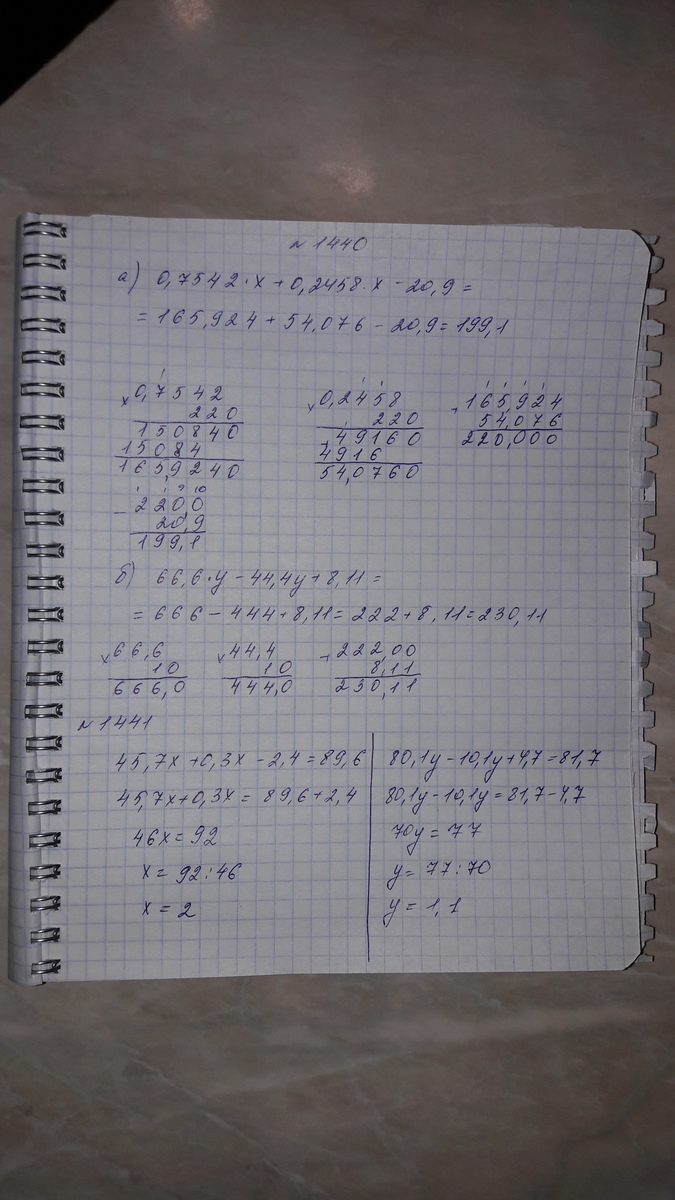 № 1440
а) 0,7542·x+0,2458·x-20,9=
=165,924+54,076-20,9=199,1
× 0,7542
220
150840
15084
165,9240
× 0,2458
220
49160
4916
54,0760
+ 165,924
54,076
220,000
- 220,0
20,9
199,1
б) 66,6·y-44,4y+8,11=
=666-444+8,11=222+8,11=230,11
× 66,6
10
666,0
× 44,4
10
444,0
+ 222,00
8,11
230,11
№ 1441
45,7x+0,3x-2,4=89,6
45,7x+0,3x=89,6+2,4
46x=92
x=92:46
x=2
80,1y-10,1y+4,7=81,7
80,1y-10,1y=81,7-4,7
70y=77
y=77:70
y=1,1